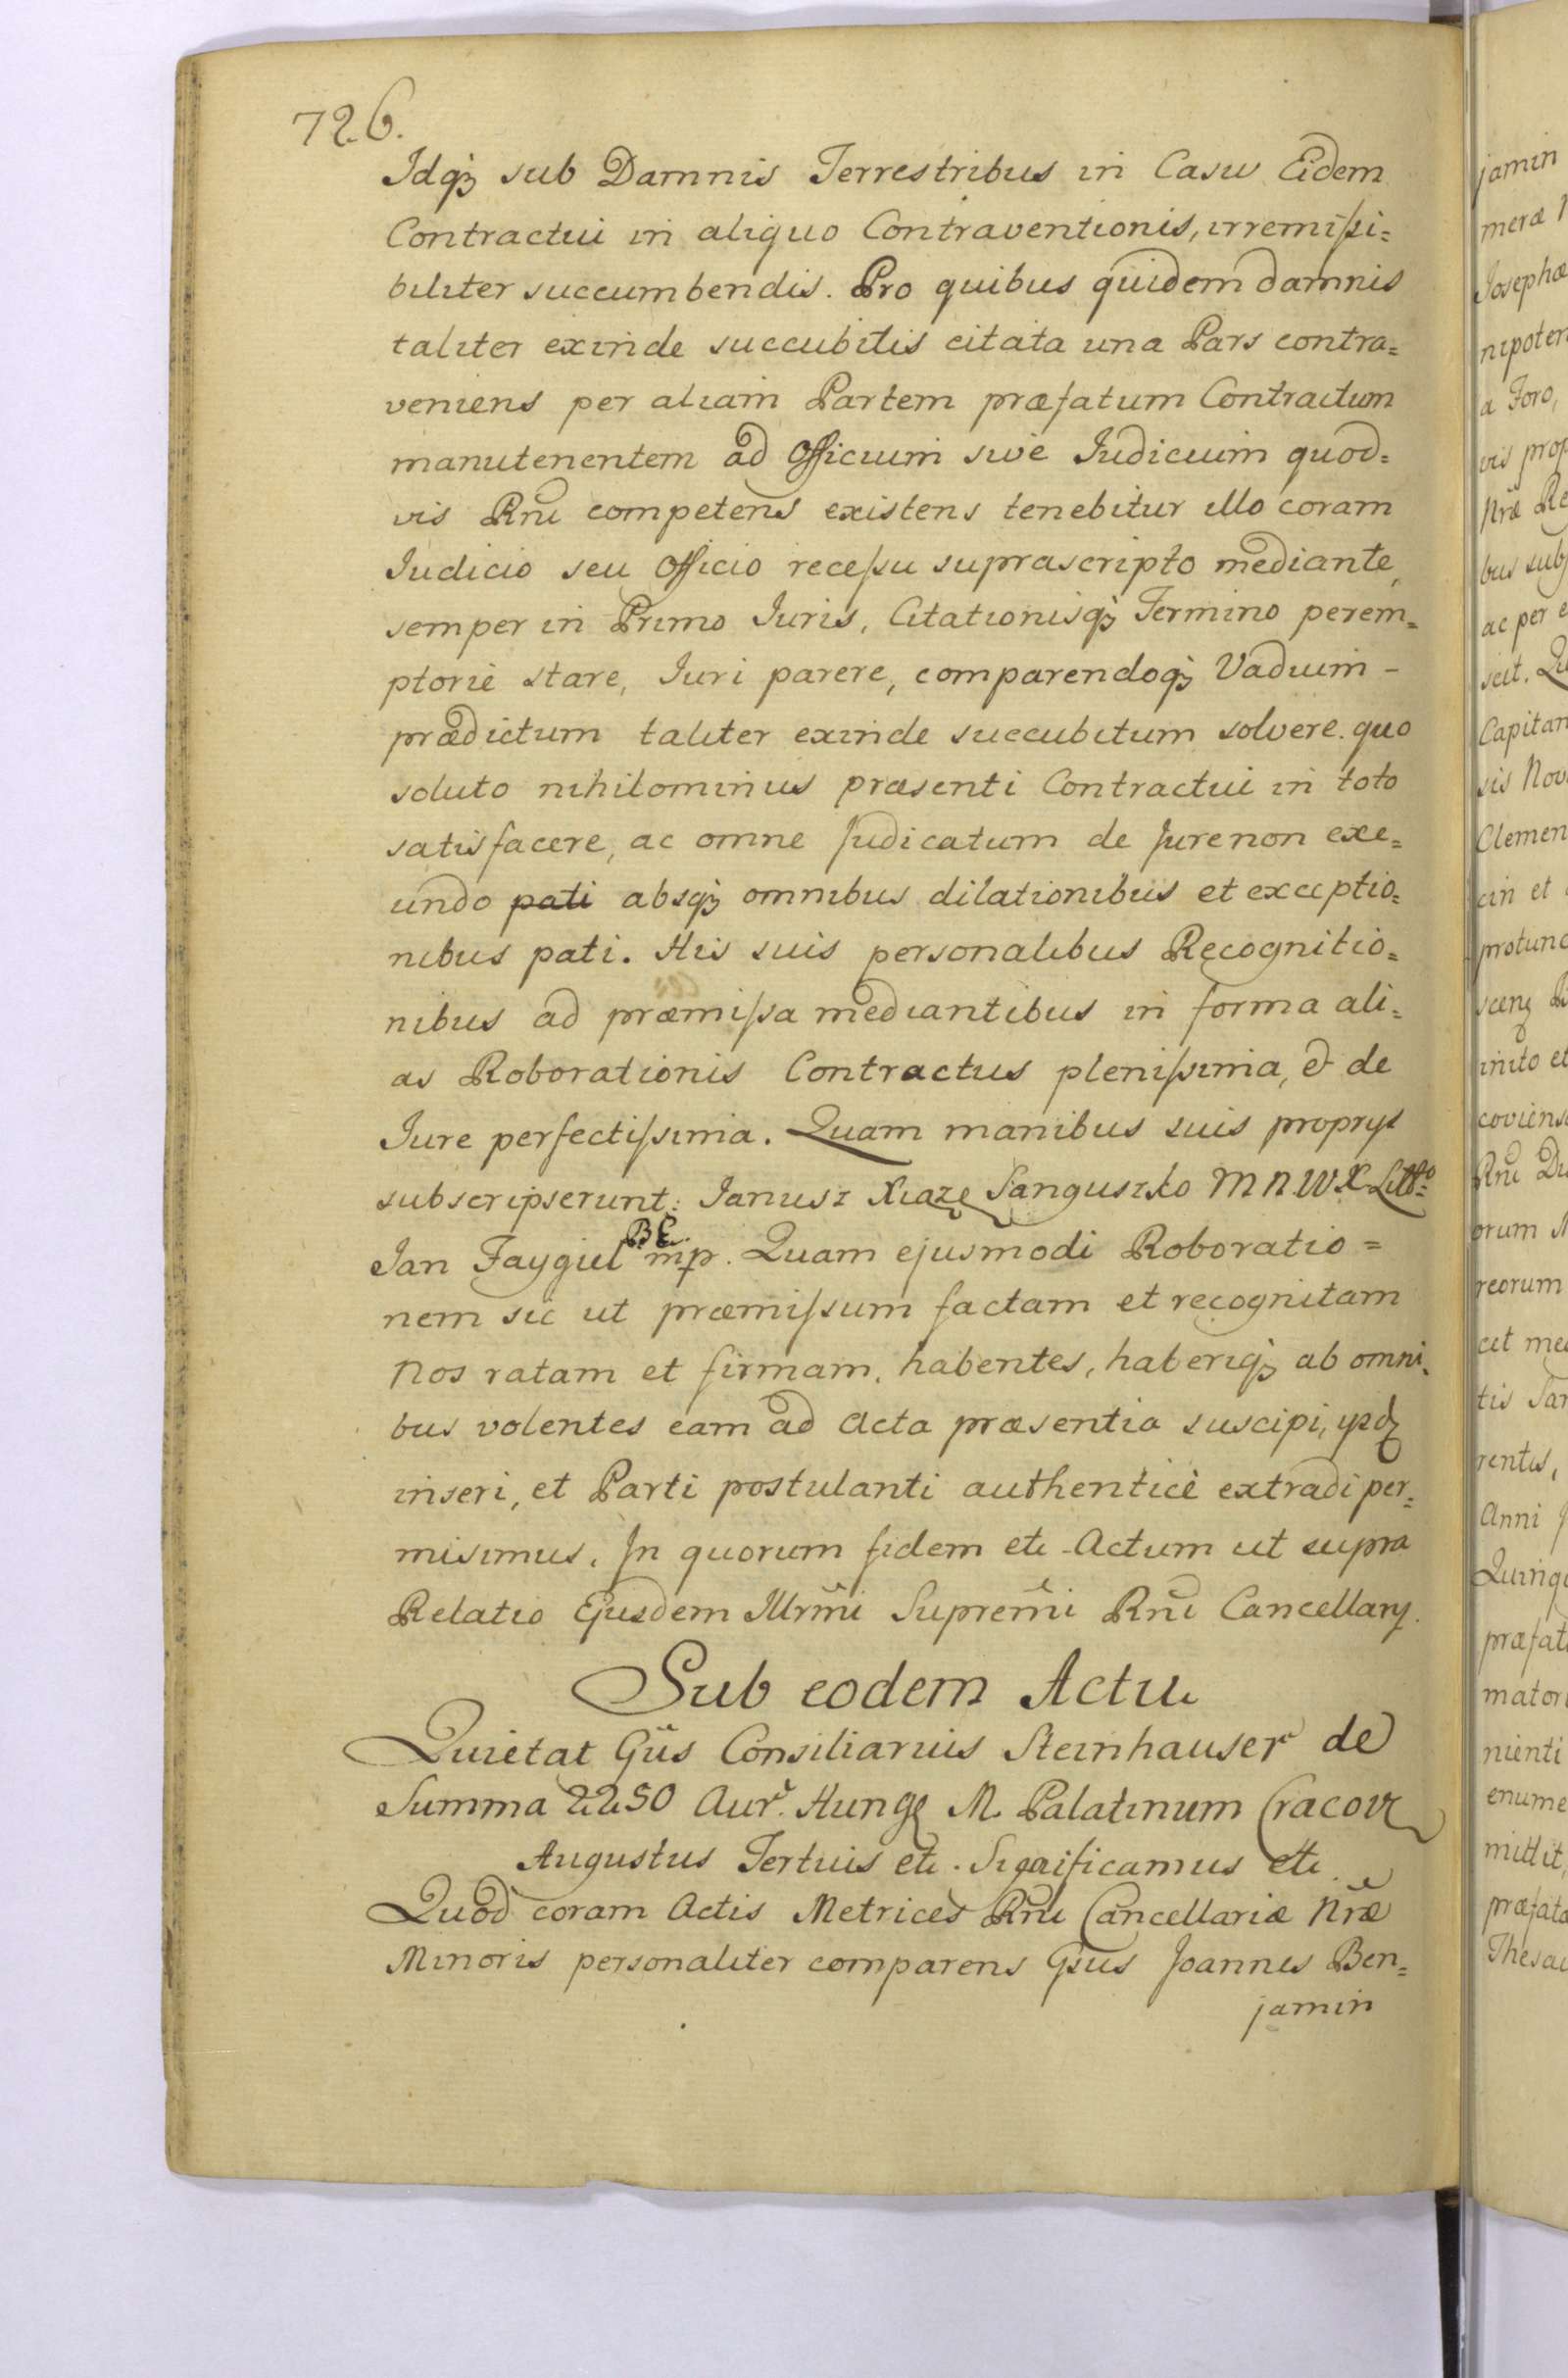 726.
Idq́ȝ sub Damnis Terrestribus in Casu Eidem
Contractui in aliquo Contraventionis, irremiſsi=
biliter succumbendis. Pro quibus quidem damnis
taliter exinde succubitis citata una Pars contra=
veniens per aliam Partem præfatum Contractum
manutenentem ad Officium sive Iudicium quod=
vis Rñi competens existens tenebitur illo coram
Iudicio seu Officio receſsu suprascripto mediante,
semper in Primo Iuris, Citationisq́ȝ Termino perem=
ptorie stare, Iuri parere, comparendoq́ȝ Vadium -
prædictum taliter exinde succubitum solvere. quo
soluto nihilominus præsenti Contractui in toto
satisfacere, ac omne Judicatum de Jure non exe=
undo pati absq́ȝ omnibus dilationibus et exceptio=
nibus pati. His suis personalibus Recognitio=
nibus ad præmiſsa mediantibus in forma ali=
as Roborationis Contractus pleniſsima, & de
Iure perfectiſsima. Quam manibus suis proprys
subscripserunt: Janusz Xiazę Sanguszko M N W X Litto
Jan Faygiel BC. mp. Quam ejusmodi Roboratio=
nem sic ut præmiſsum factam et recognitam
Nos ratam et firmam, habentes, haberiq́ȝ ab omni=
bus volentes eam ad Acta præsentia suscipi, ysdȝ
inseri, et Parti postulanti authenticè extradi per=
misimus. In quorum fidem etc Actum ut supra
Relatio Ejusdem Illrm̃i Suprem̃i Rñi Cancellary.
Sub eodem Actu
Quietat Gñs Consiliarius Steinhauser de
Summa 2250 Aur. Hung M. Palatinum Cracov
Augustus Tertius etc. Significamus etc
Quod coram Actis Metrices Rñi Cancellariæ Nræ
Minoris personaliter comparens Gsus Joannes Ben=
jamin